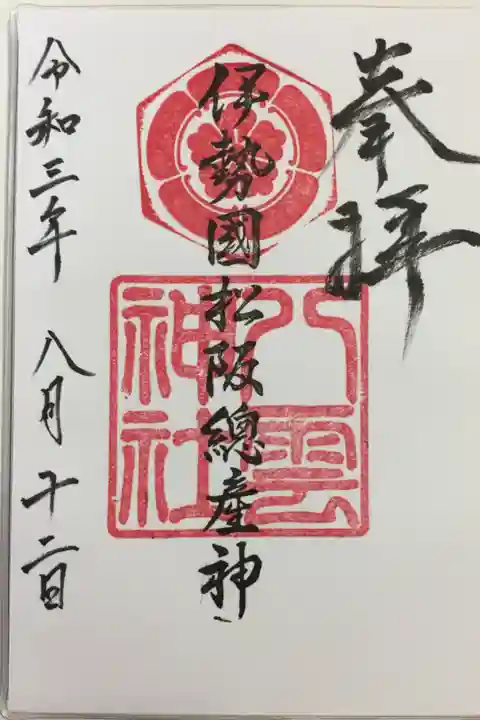 奉拝
伊勢國松阪總産神
八雲
神社
令和三年 八月十二日